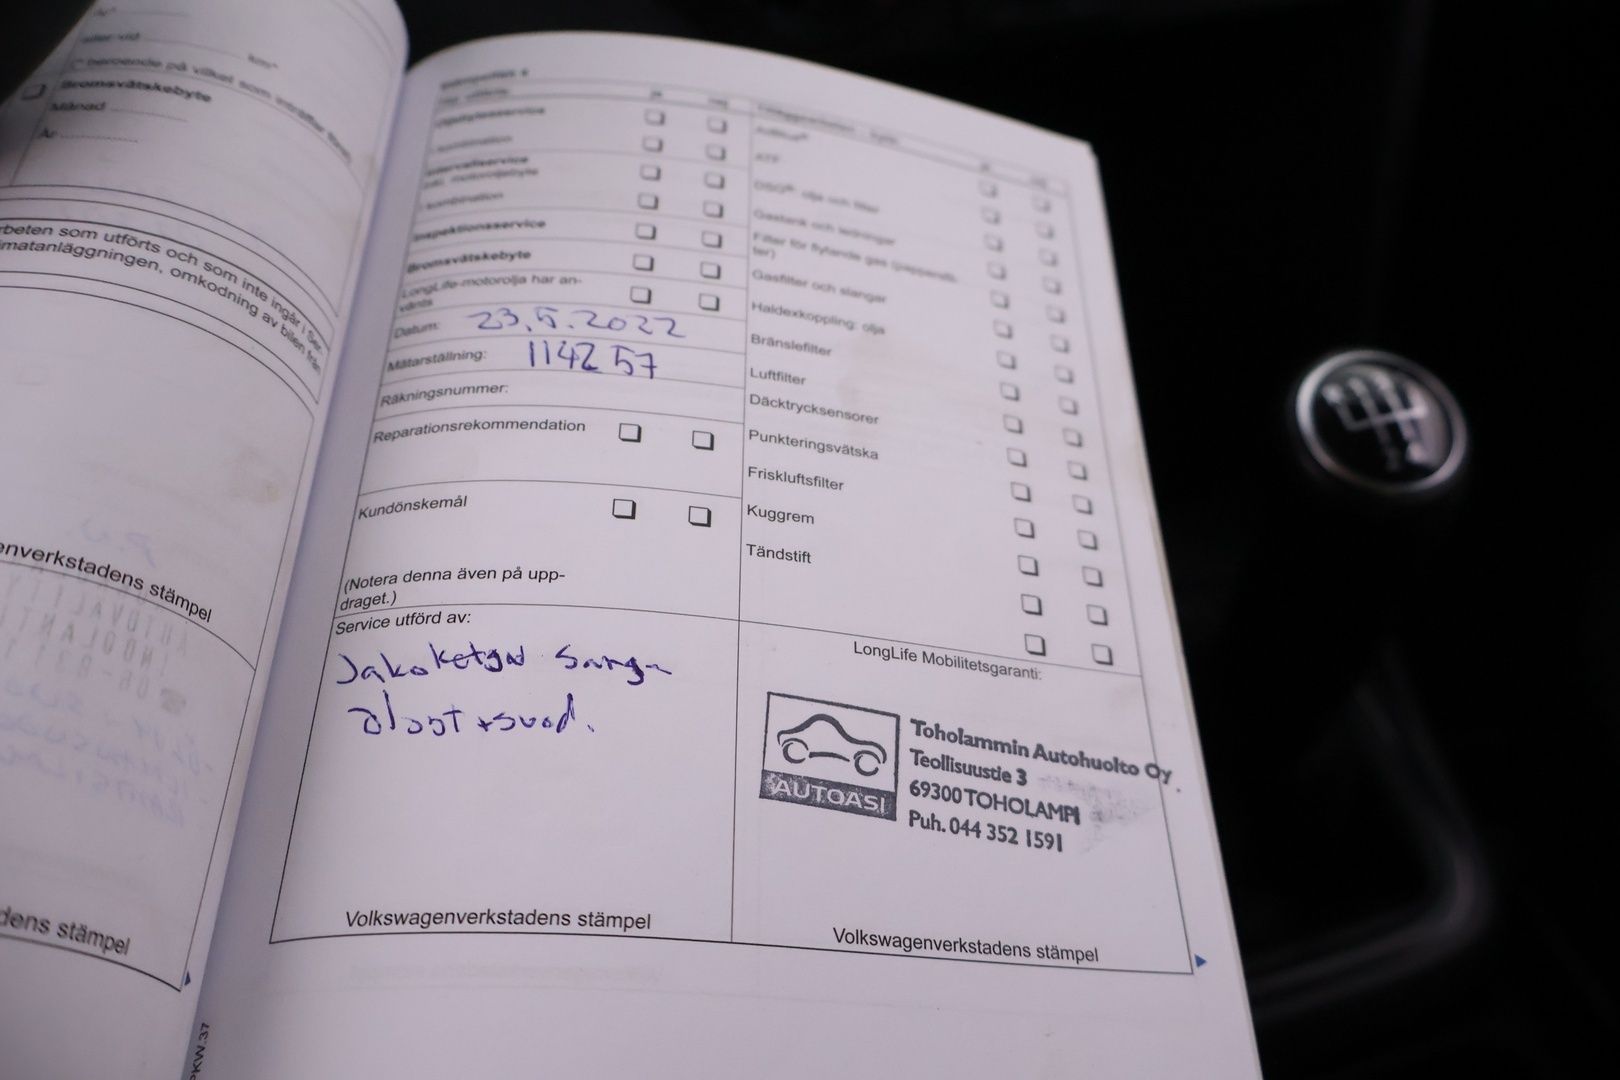 eller vid
km*
beroende på vilket som inträffar först
Bromsvätskebyte
Månad
År
rbeten som utförts och som inte ingår i Ser-
imatanläggningen, omkodning av bilen från
enverkstadens stämpel
dens stämpel
PKW.37
Inspektionsservice
Bromsvätskebyte
LongLife-motorolja har an-
vänts
Datum: 23.5.2022
Mätarställning: 114257
Räkningsnummer:
Reparationsrekommendation
Kundönskemål
(Notera denna även på upp-
draget.)
Service utförd av:
Volkswagenverkstadens stämpel
AdBlue®
ATF
DSG®: olja och filter
Gastank och ledningar
Filter för flytande gas (pappersfil-
ter)
Gasfilter och slangar
Haldexkoppling: olja
Bränslefilter
Luftfilter
Däcktrycksensorer
Punkteringsvätska
Friskluftsfilter
Kuggrem
Tändstift
LongLife Mobilitetsgaranti:
AUTOASI
Toholammin Autohuolto Oy
Teollisuustie 3
69300 TOHOLAMPI
Puh. 044 352 1591
Volkswagenverkstadens stämpel